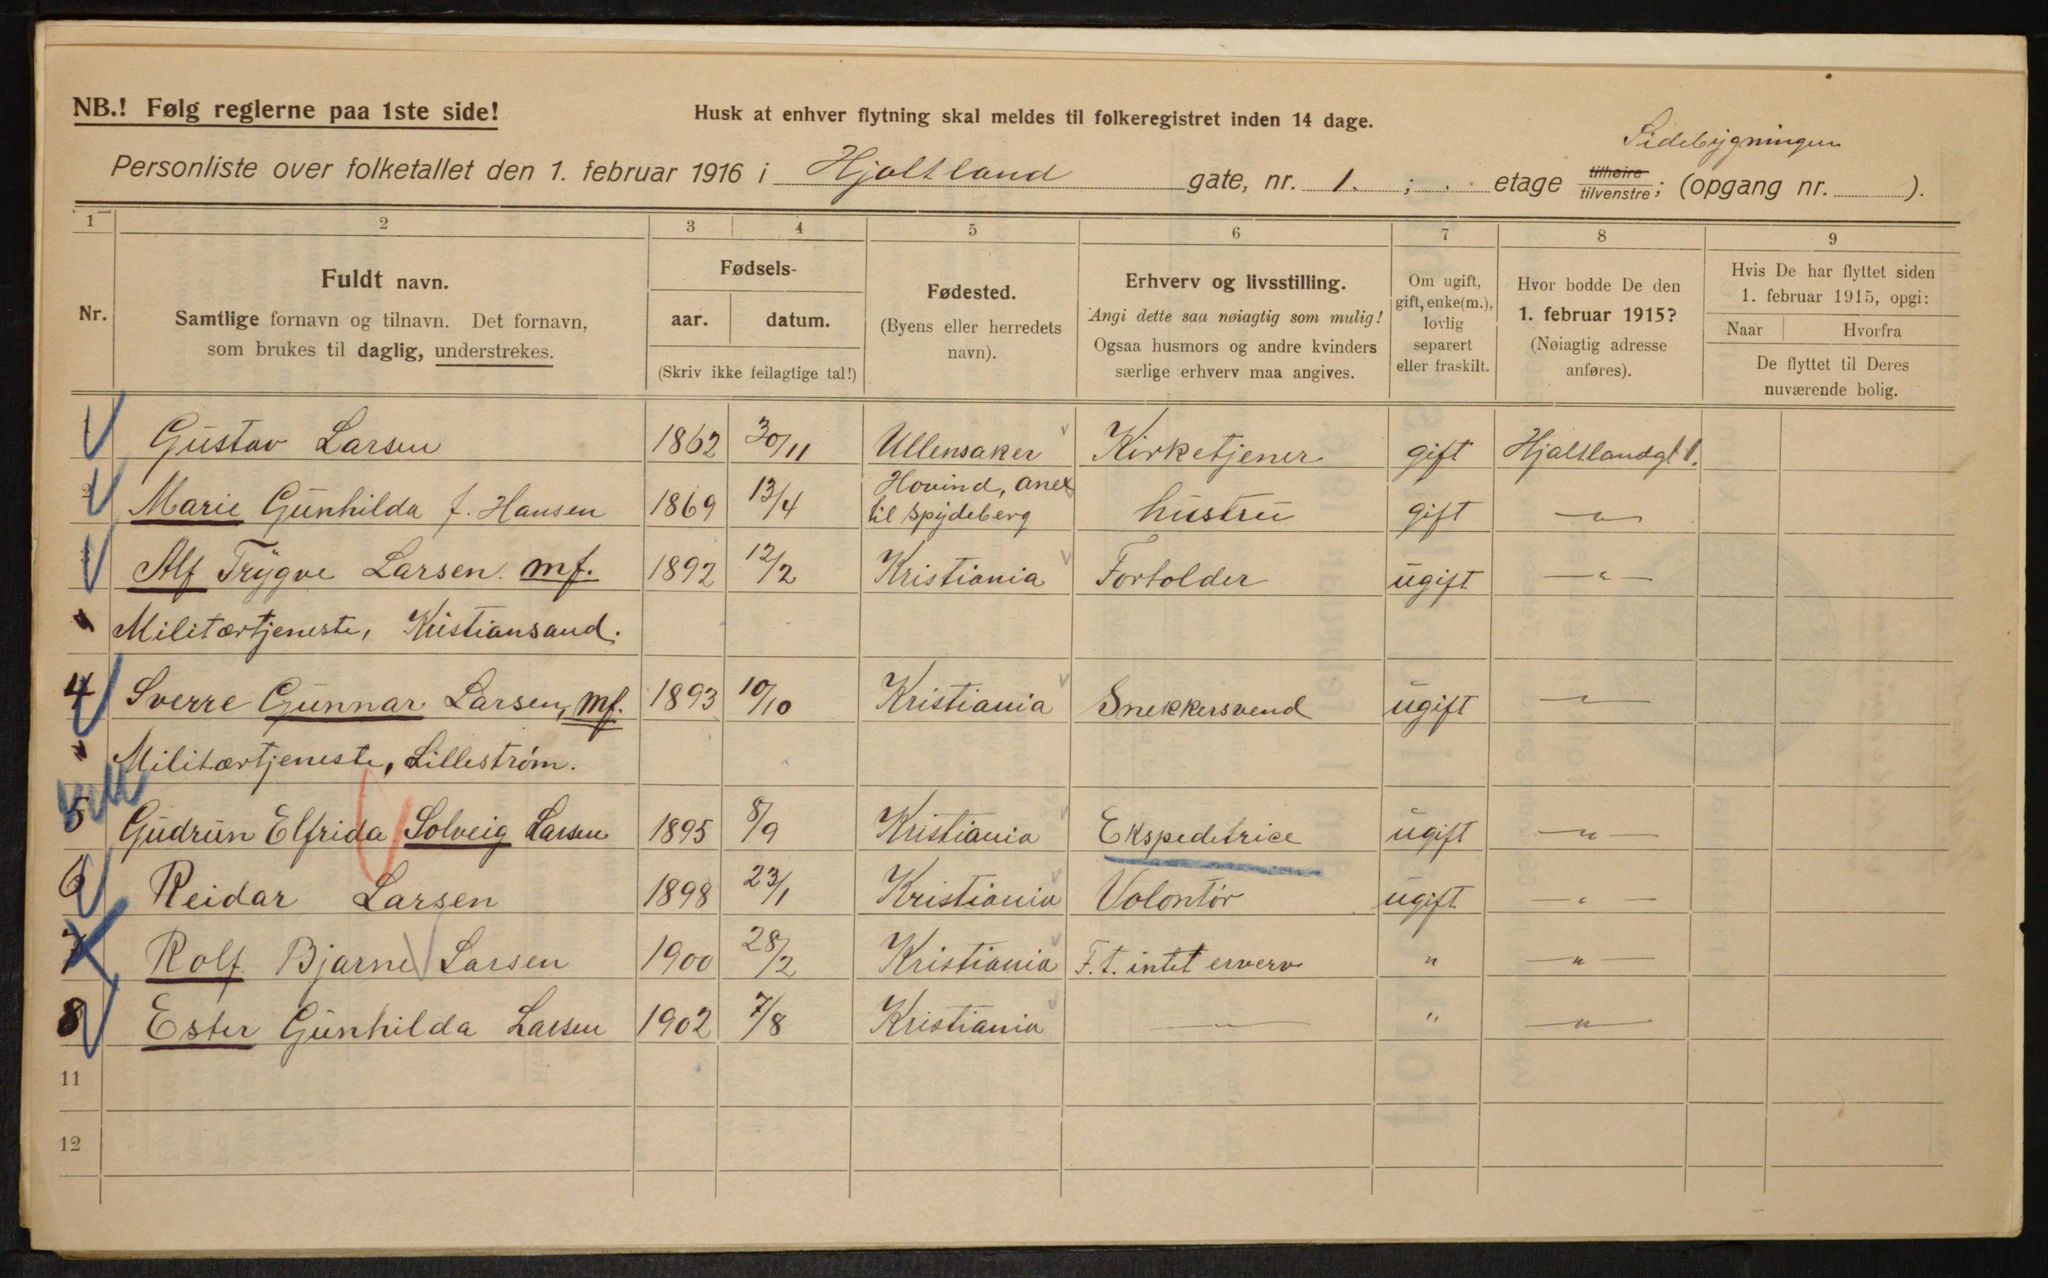 NB.! Følg reglerne paa 1ste side!
Husk at enhver flytning skal meldes til folkeregistret inden 14 dage.
Sidebygningen
Personliste over folketallet den 1. februar 1916 i Hjaltland gate, nr. 1. ; . . etage tilhøire tilvenstre; (opgang nr. ).
1 2 3 4 5 6 7 8 9
Nr.
Fuldt navn.
Samtlige fornavn og tilnavn. Det fornavn,
som brukes til daglig, understrekes.
Fødsels-
aar. datum.
(Skriv ikke feilagtige tal!)
Fødested.
(Byens eller herredets
navn).
Erhverv og livsstilling.
Angi dette saa nøiagtig som mulig!
Ogsaa husmors og andre kvinders
særlige erhverv maa angives.
Om ugift,
gift, enke(m.),
lovlig
separert
eller fraskilt.
Hvor bodde De den
1. februar 1915?
(Nøiagtig adresse
anføres).
Hvis De har flyttet siden
1. februar 1915, opgi:
Naar Hvorfra
De flyttet til Deres
nuværende bolig.
Gustav Larsen 1862 30/11 Ullensaker Kirketjener gift Hjaltlandgt 1.
2 Marie Gunhilda f. Hansen 1869 13/4 Hovind, anex til Spydeberg hustru gift —"—
Alf Trygve Larsen. mf. 1892 12/2 Kristiania Forholder ugift —"—
" Militærtjeneste, Kristiansand.
4 Sverre Gunnar Larsen, mf. 1893 10/10 Kristiania Snekkersvend ugift —"—
" Militærtjeneste, Lillestrøm.
5 Gudrun Elfrida Solveig Larsen 1895 8/9 Kristiania Ekspeditrice ugift —"—
6 Reidar Larsen 1898 23/1 Kristiania Volontør ugift —"—
7 Rolf Bjarne Larsen 1900 28/2 Kristiania F.t. intet erverv " —"—
8 Ester Gunhilda Larsen 1902 7/8 Kristiania —"— " —"—
11
12